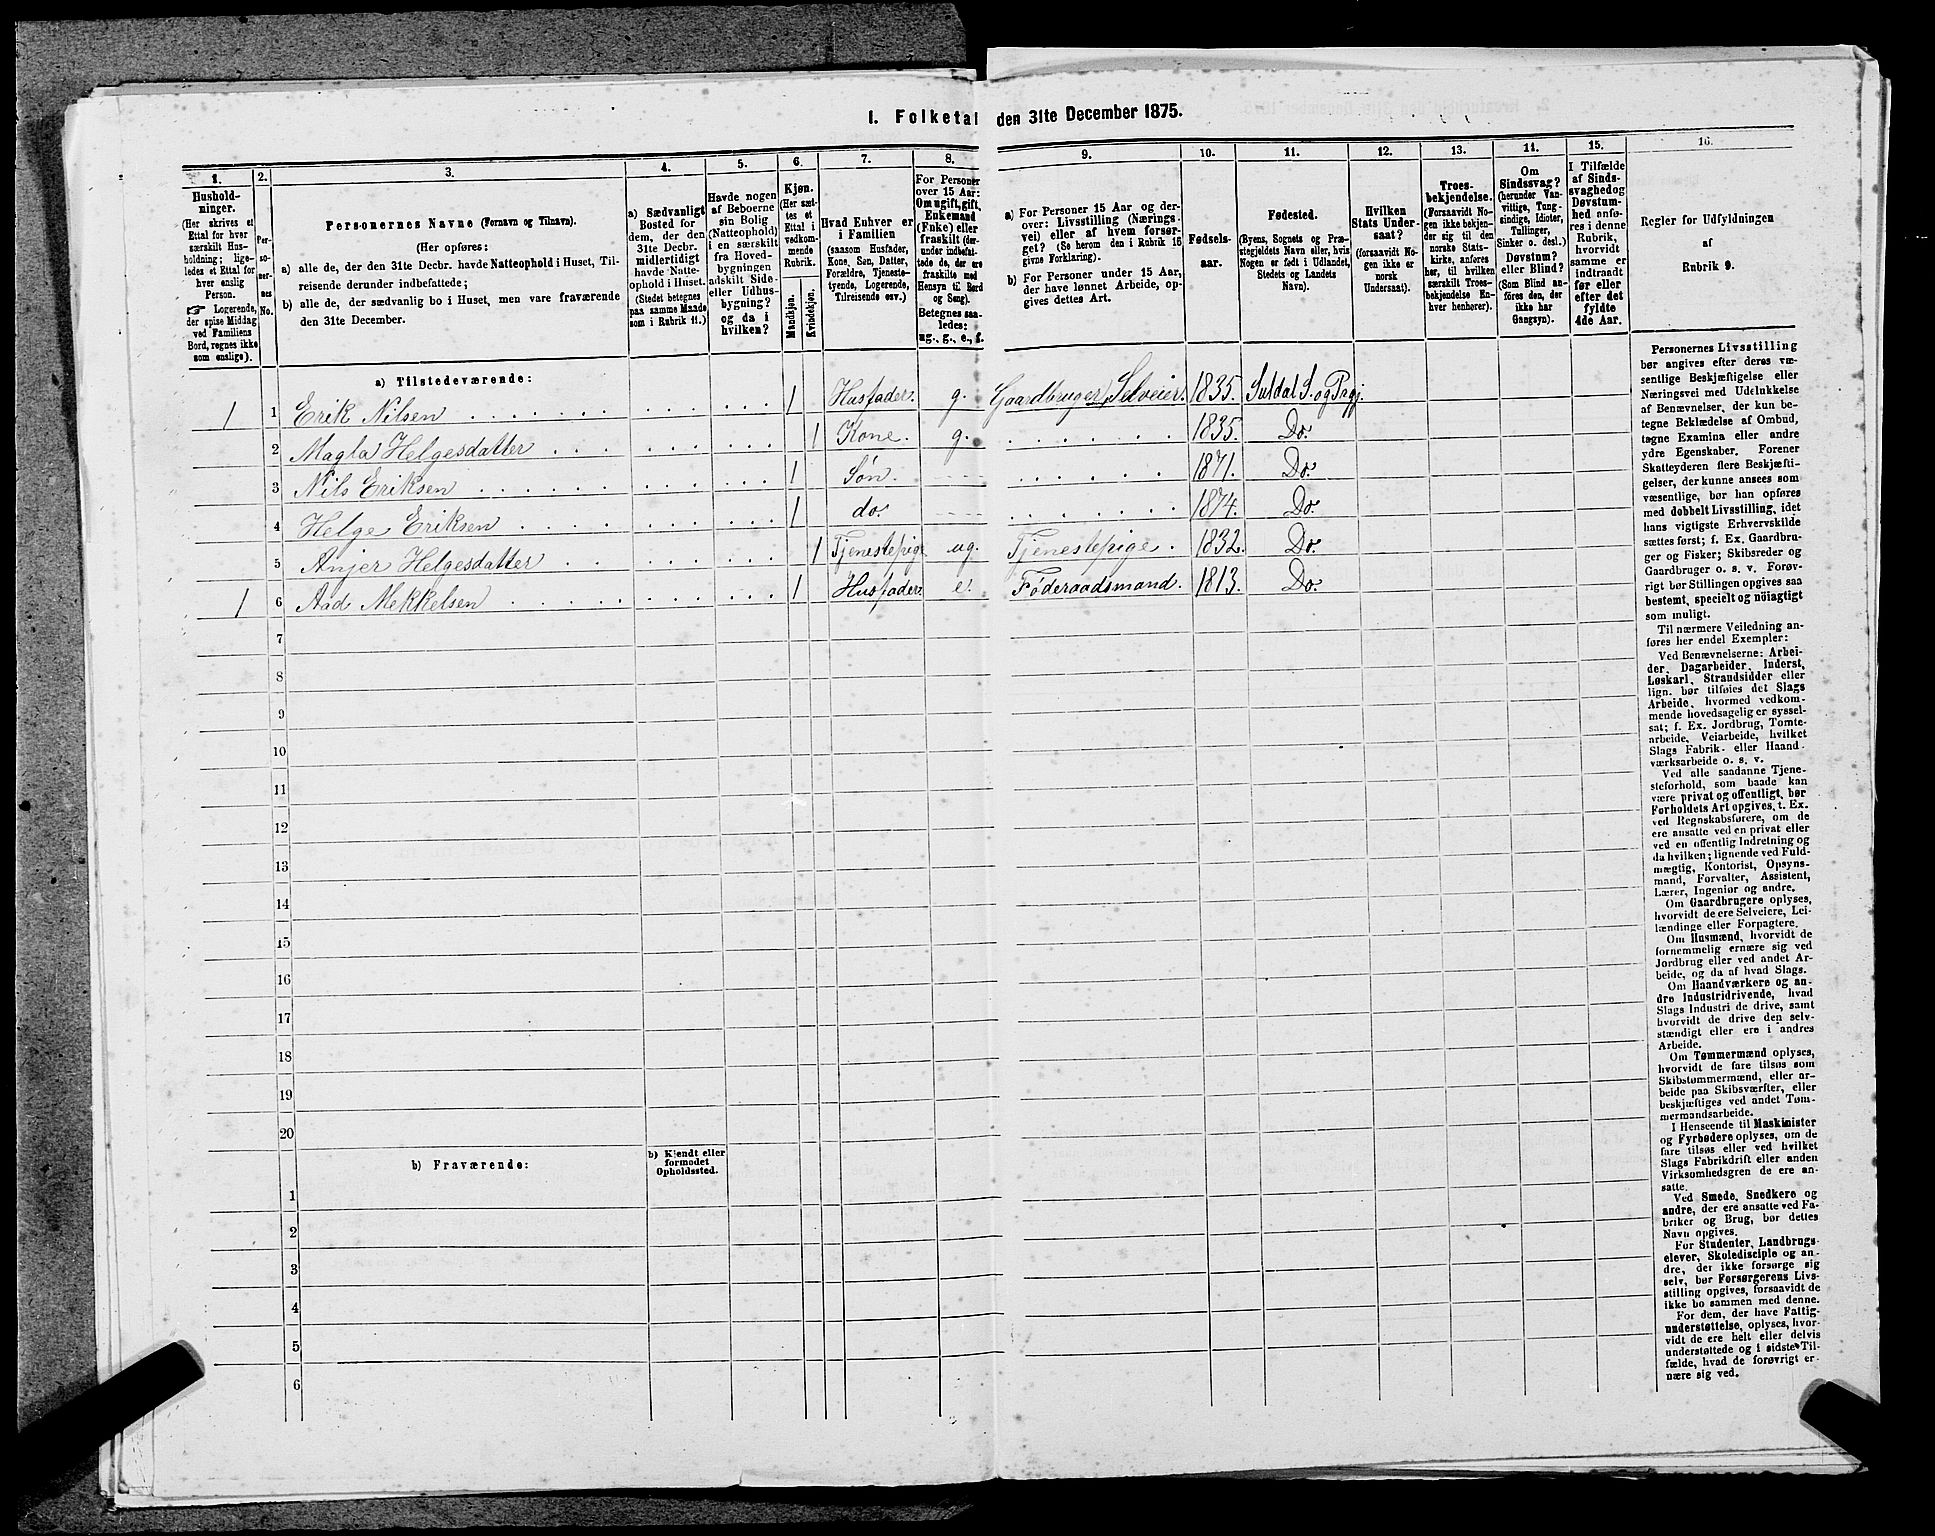 I. Folketal den 31te December 1875.
1.
Hushold-
ninger.
(Her skrives et
Ettal for hver
særskilt Hus-
holdning; lige-
ledes et Ettal for
hver enslig
Person.
☞ Logerende,
der spise Middag
ved Familiens
Bord, regnes ikke
som enslige).
2.
Per-
so-
ner-
nes
No.
3.
Personernes Navne (Fornavn og Tilnavn).
(Her opføres:
a) alle de, der den 31te Decbr. havde Natteophold i Huset, Til-
reisende derunder indbefattede;
b) alle de, der sædvanlig bo i Huset, men vare fraværende
den 31te December.
4.
a) Sædvanligt
Bosted for
dem, der den
31te Decbr.
midlertidigt
havde Natte-
ophold i Huset.
(Stedet betegnes
paa samme Maade
som i Rubrik 11.)
5.
Havde nogen
af Beboerne
sin Bolig
(Natteophold)
i en særskilt
fra Hoved-
bygningen
adskilt Side-
eller Udhus-
bygning?
og da i
hvilken?
6.
Kjøn.
(Her sæt-
tes et
Ettal i
vedkom-
mende
Rubrik.
Mandkjøn.
Kvindekjøn.
7.
Hvad Enhver er
i Familien
(saasom Husfader,
Kone, Søn, Datter,
Forældre, Tjeneste-
tyende, Logerende,
Tilreisende osv.)
8.
For Personer
over 15 Aar:
Om ugift, gift,
Enkemand
(Enke) eller
fraskilt (der-
under indbefat-
tede de, der ere
fraskilte med
Hensyn til Bord
og Seng).
Betegnes saa-
ledes:
ug., g., e., f.
9.
a) For Personer 15 Aar og der-
over: Livsstilling (Nærings-
vei) eller af hvem forsør-
get? (Se herom den i Rubrik 16
givne Forklaring).
b) For Personer under 15 Aar,
der have lønnet Arbeide, op-
gives dettes Art.
10.
Fødsels-
aar.
11.
Fødested.
(Byens, Sognets og Præ-
stegjeldets Navn eller, hvis
Nogen er født i Udlandet,
Stedets og Landets
Navn).
12.
Hvilken
Stats Under-
saat?
(forsaavidt No-
gen ikke er
norsk
Undersaat).
13.
Troes-
bekjendelse.
(Forsaavidt No-
gen ikke bekjen-
der sig til den
norske Stats-
kirke, anføres
her, til hvilken
særskilt Troes-
bekjendelse En-
hver henhører).
14.
Om
Sindssvag?
(herunder Van-
vittige, Tung-
sindige, Idioter,
Tullinger,
Sinker o. desl.)
Døvstum?
eller Blind?
(Som Blind an-
føres den, der
ikke har
Gangsyn).
15.
I Tilfælde
af Sinds-
svaghed og
Døvstum-
hed anfø-
res i denne
Rubrik,
hvorvidt
samme er
indtraadt
før eller
efter det
fyldte
4de Aar.
16.
Regler for Udfyldningen
af
Rubrik 9.
a) Tilstedeværende:
1 1 Erik Nilsen 1 Husfader. g. Gaardbruger, Selveier. 1835. Suldal S. og Prgj.
2 Magla Helgesdatter 1 Kone. g. 1835. Do.
3 Nils Eriksen 1 Søn. 1871. Do.
4 Helge Eriksen 1 do. 1874. Do.
5 Anjer Helgesdatter 1 Tjenestepige ug. Tjenestepige. 1832. Do.
1 6 Aad Mekkelsen 1 Husfader. e. Føderaadsmand. 1813. Do.
7
8
9
10
11
12
13
14
15
16
17
18
19
20
b) Fraværende:
b) Kjendt eller
formodet
Opholdssted.
1
2
3
4
5
6
Personernes Livsstilling
bør angives efter deres væ-
sentlige Beskjæftigelse eller
Næringsvei med Udelukkelse
af Benævnelser, der kun be-
tegne Beklædelse af Ombud,
tagne Examina eller andre
ydre Egenskaber. Forener
Skatteyderen flere Beskjæfti-
gelser, der kunne ansees som
væsentlige, bør han opføres
med dobbelt Livsstilling, idet
hans vigtigste Erhvervskilde
sættes først; f. Ex. Gaardbru-
ger og Fisker; Skibsreder og
Gaardbruger o. s. v. Forøv-
rigt bør Stillingen opgives saa
bestemt, specielt og nöiagtigt
som muligt.
Til nærmere Veiledning an-
føres her endel Exempler:
Ved Benævnelserne: Arbei-
der, Dagarbeider, Inderst,
Løskarl, Strandsidder eller
lign. bør tilføies det Slags
Arbeide, hvormed vedkom-
mende hovedsagelig er syssel-
sat; f. Ex. Jordbrug, Tomte-
arbeide, Veiarbeide, hvilket
Slags Fabrik- eller Haand-
værksarbeide o. s. v.
Ved alle saadanne Tjene-
steforhold, som baade kan
være privat og offentligt, bør
Forholdets Art opgives, t. Ex.
ved Regnskabsførere, om de
ere ansatte ved en privat eller
ved en offentlig Indretning og
da hvilken; lignende ved Fuld-
mægtig, Kontorist, Opsyns-
mand, Forvalter, Assistent,
Lærer, Ingeniør og andre.
Om Gaardbrugere oplyses,
hvorvidt de ere Selveiere, Lei-
lændinge eller Forpagtere.
Om Husmænd, hvorvidt de
fornemmelig ernære sig ved
Jordbrug eller ved andet Ar-
beide, og da af hvad Slags.
Om Haandværkere og an-
dre Industridrivende, hvad
Slags Industri de drive, samt
hvorvidt de drive den selv-
stændigt eller ere i andres
Arbeide.
Om Tømmermænd oplyses,
hvorvidt de fare tilsøs som
Skibstømmermænd, eller ar-
beide paa Skibsværfter, eller
beskjæftiges ved andet Tøm-
mermandsarbeide.
I Henseende til Maskinister
og Fyrbødere oplyses, om de
fare tilsøs eller ved hvilket
Slags Fabrikdrift eller anden
Virksomhedsgren de ere an-
satte.
Ved Smede, Snedkere og
andre, der ere ansatte ved Fa-
briker og Brug, bør dettes
Navn opgives.
For Studenter, Landbrugs-
elever, Skoledisciple og an-
dre, der ikke forsørge sig
selv, bør Forsørgerens Livs-
stilling opgives, forsaavidt de
ikke bo sammen med denne.
For dem, der have Fattig-
understøttelse, oplyses, hvor-
vidt de ere helt eller delvis
understøttede og i sidste Til-
fælde, hvad de forøvrigt er-
nære sig ved.